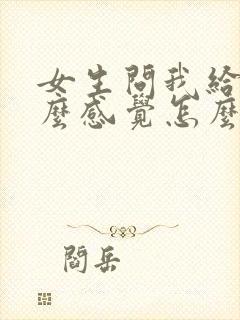 女生問我給
麼感覺怎麼
閻岳